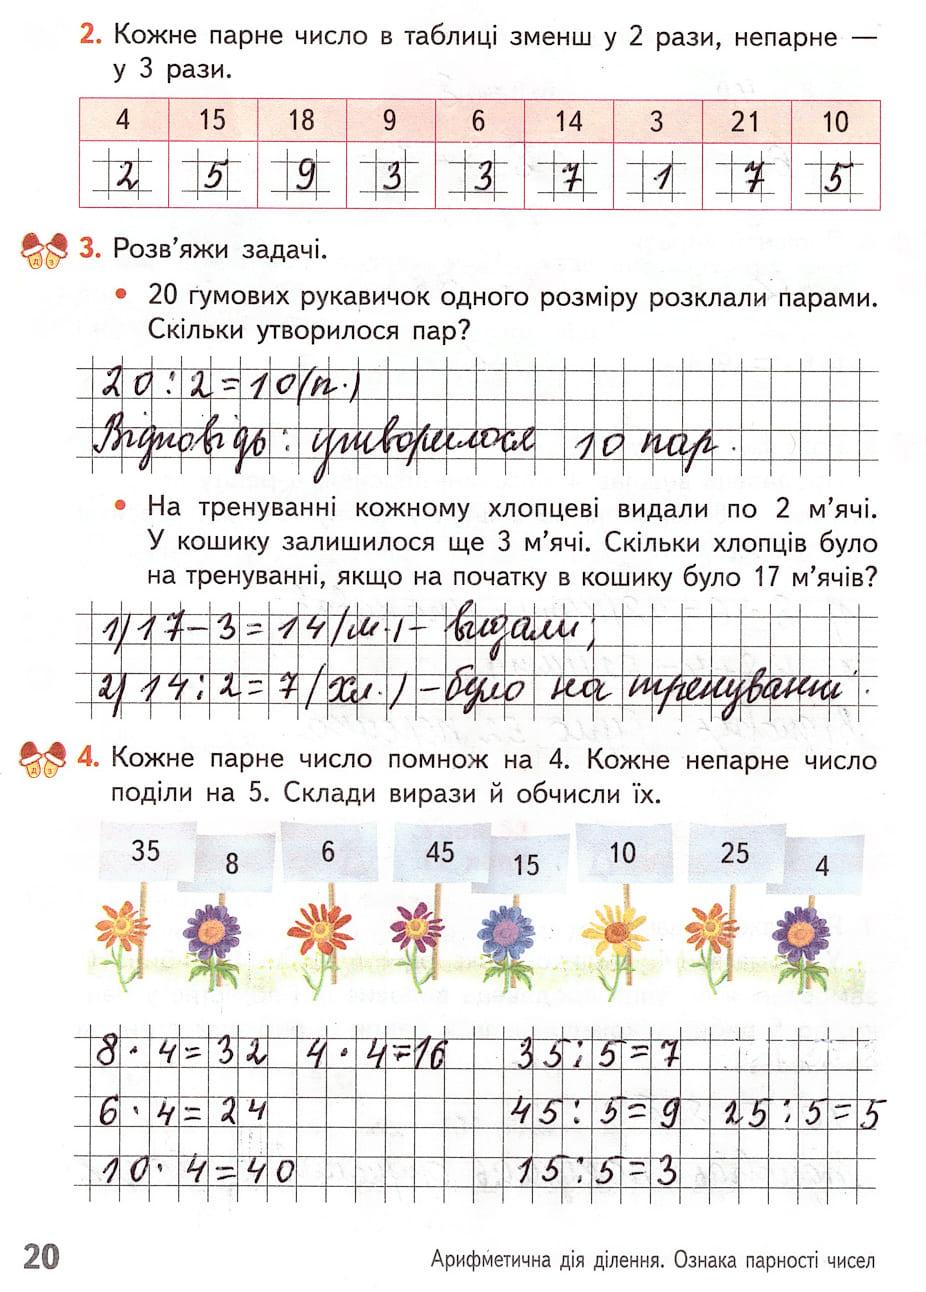 2. Кожне парне число в таблиці зменш у 2 рази, непарне —
у 3 рази.
4 15 18 9 6 14 3 21 10
2 5 9 3 3 7 1 7 5
3. Розв’яжи задачі.
• 20 гумових рукавичок одного розміру розклали парами.
Скільки утворилося пар?
20 : 2 = 10 (п.)
Відповідь: утворилося 10 пар.
• На тренуванні кожному хлопцеві видали по 2 м’ячі.
У кошику залишилося ще 3 м’ячі. Скільки хлопців було
на тренуванні, якщо на початку в кошику було 17 м’ячів?
1) 17 – 3 = 14 (м.) – видали;
2) 14 : 2 = 7 (хл.) – було на тренуванні.
4. Кожне парне число помнож на 4. Кожне непарне число
поділи на 5. Склади вирази й обчисли їх.
35 8 6 45 15 10 25 4
8 · 4 = 32 4 · 4 = 16 35 : 5 = 7
6 · 4 = 24 45 : 5 = 9 25 : 5 = 5
10 · 4 = 40 15 : 5 = 3
20 Арифметична дія ділення. Ознака парності чисел